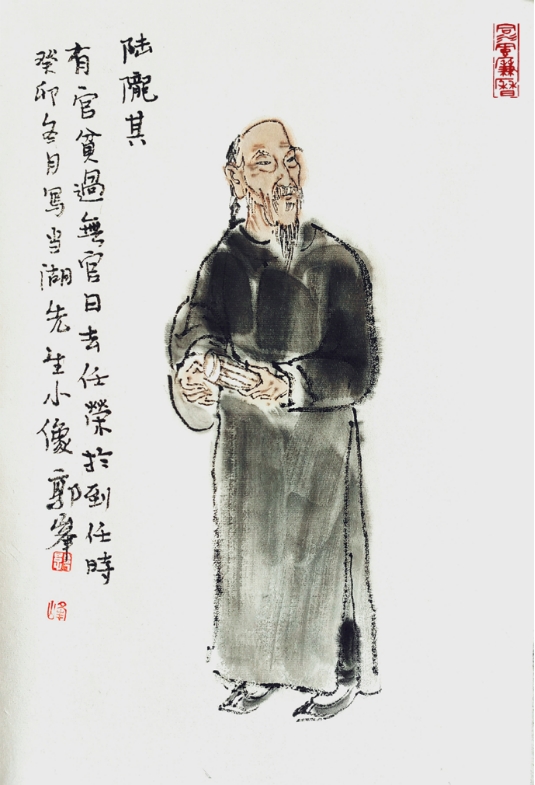 陆隴其
有官貧過無官日去任榮於到任時
癸卯冬月写当湖先生小像 郭峰